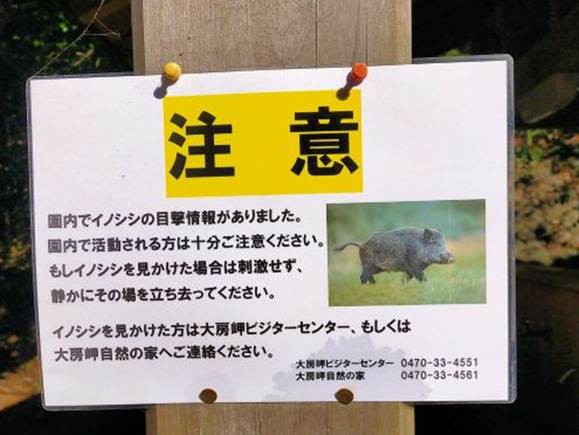 注 意
園内でイノシシの目撃情報がありました。
園内で活動される方は十分ご注意ください。
もしイノシシを見かけた場合は刺激せず、
静かにその場を立ち去ってください。
イノシシを見かけた方は大房岬ビジターセンター、もしくは
大房岬自然の家へご連絡ください。
大房岬ビジターセンター 0470-33-4551
大房岬自然の家 0470-33-4561